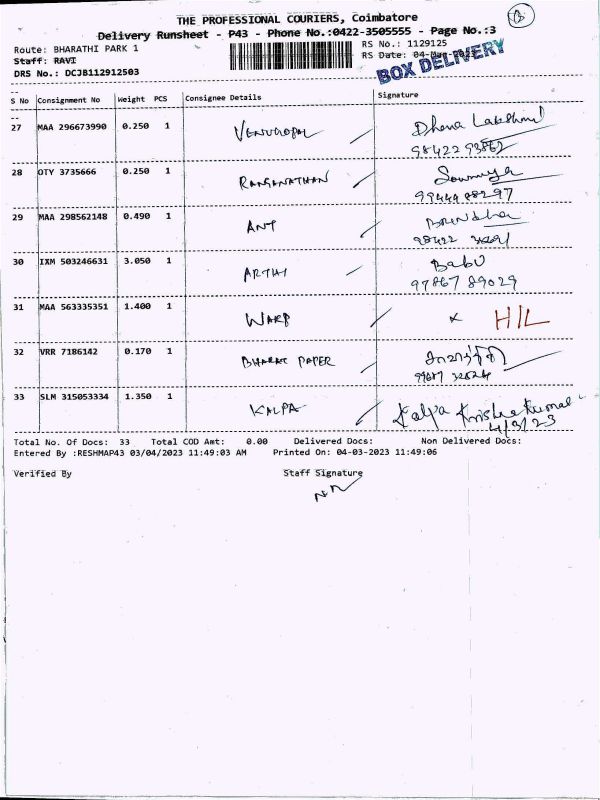 THE PROFESSIONAL COURIERS, Coimbatore
Delivery Runsheet - P43 - Phone No.:0422-3505555 - Page No.:3
Route: BHARATHI PARK 1 RS No.: 1129125
Staff: RAVI RS Date: 04-Mar-2023
DRS No.: DCJB112912503 BOX DELIVERY
S No Consignment No Weight PCS Consignee Details Signature
27 MAA 296673990 0.250 1 VENUGOPAL Dhana Lakshmi
98422 93862
28 OTY 3735666 0.250 1 RANGANATHAN Sowmya
99444 88297
29 MAA 298562148 0.490 1 ANT Brindha
98422
30 IXM 503246631 3.050 1 ARTHI Babu
97867 89029
31 MAA 563335351 1.400 1 WARP x H/L
32 VRR 7186142 0.170 1 BHARAT PAPER
33 SLM 315053334 1.350 1 KALPA Kalpa Krishna Kumar
4/3/23
Total No. Of Docs: 33 Total COD Amt: 0.00 Delivered Docs: Non Delivered Docs:
Entered By :RESHMAP43 03/04/2023 11:49:03 AM Printed On: 04-03-2023 11:49:06
Verified By Staff Signature